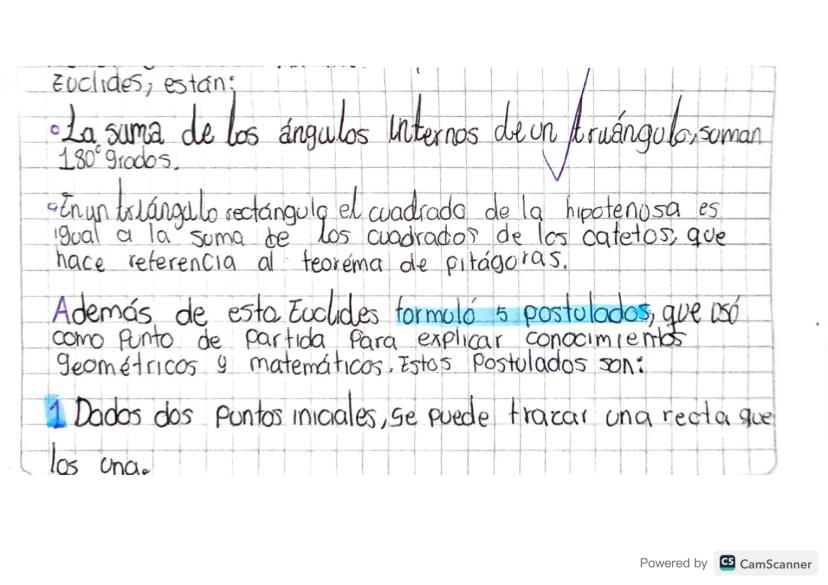 Euclides, están:
° La suma de los ángulos internos de un truángulo, suman
180° grados.
° En un triángulo rectángulo el cuadrado de la hipotenusa es
igual a la suma de los cuadrados de los catetos, que
hace referencia al teorema de pitágoras.
Además de esto Euclides formuló 5 postulados, que usó
como punto de partida para explicar conocimientos
geométricos y matemáticos. Estos postulados son:
1 Dados dos puntos iniciales, se puede trazar una recta que
los una.
Powered by CS CamScanner